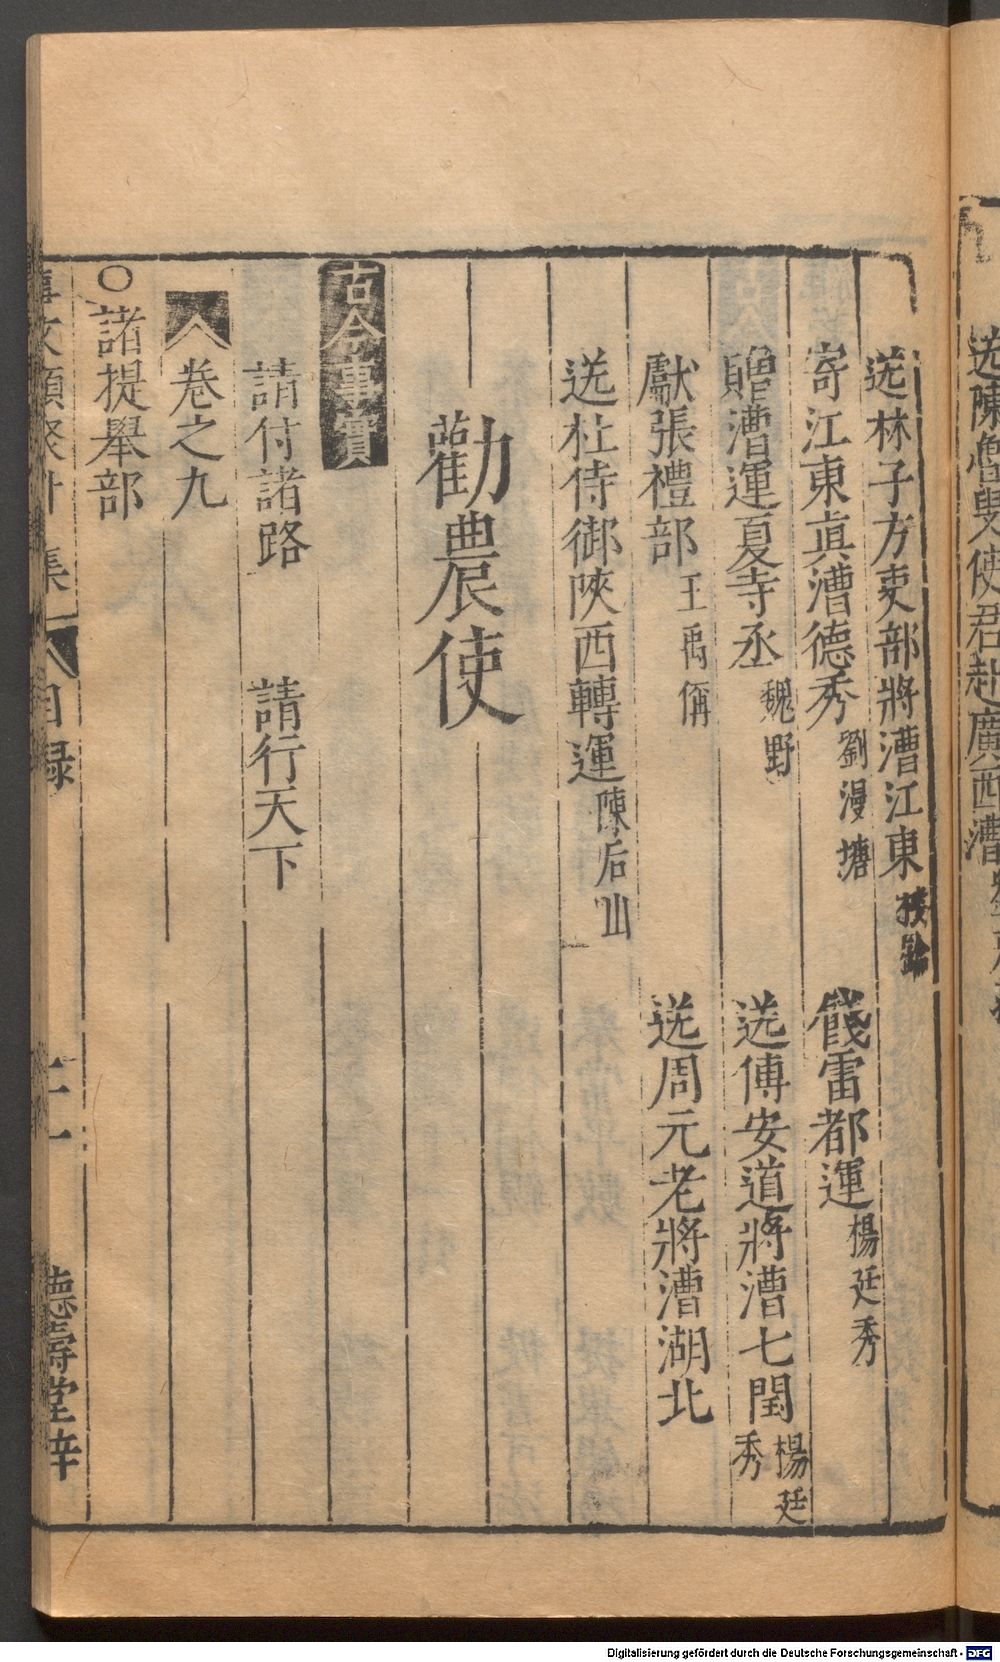 送林子方吏部將漕江東
寄江東眞漕德秀 劉漫塘 餞雷都運 楊廷秀
贈漕運夏寺丞 魏野 送傅安道將漕七閩 楊廷秀
獻張禮部 王禹偁 送周元老將漕湖北
送杜侍御陝西轉運 陳后山
勸農使
古今事實
請付諸路 請行天下
卷之九
○諸提舉部
集 目録 二十一 德壽堂梓
送陳 使君赴廣西漕
Digitalisierung gefördert durch die Deutsche Forschungsgemeinschaft - DFG